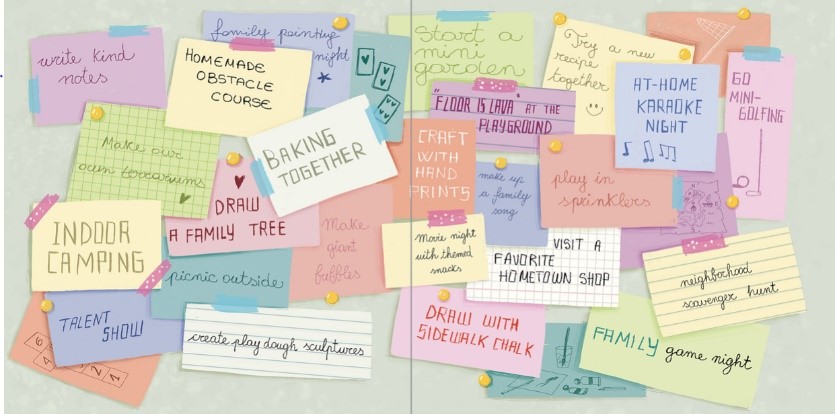 write kind
notes
family painting
night
HOMEMADE
OBSTACLE
COURSE
start a
mini
garden
Try a new
recipe
together
AT-HOME
KARAOKE
NIGHT
GO
MINI-
GOLFING
"FLOOR IS LAVA" AT THE
PLAYGROUND
Make our
own terrariums
BAKING
TOGETHER
CRAFT
WITH
HAND
PRINTS
make up
a family
song
play in
sprinklers
DRAW
A FAMILY TREE
Make
giant
bubbles
INDOOR
CAMPING
picnic outside
Movie night
with themed
snacks
VISIT A
FAVORITE
HOMETOWN SHOP
neighborhood
scavenger hunt
TALENT
SHOW
create play dough sculptures
DRAW WITH
SIDEWALK CHALK
FAMILY game night